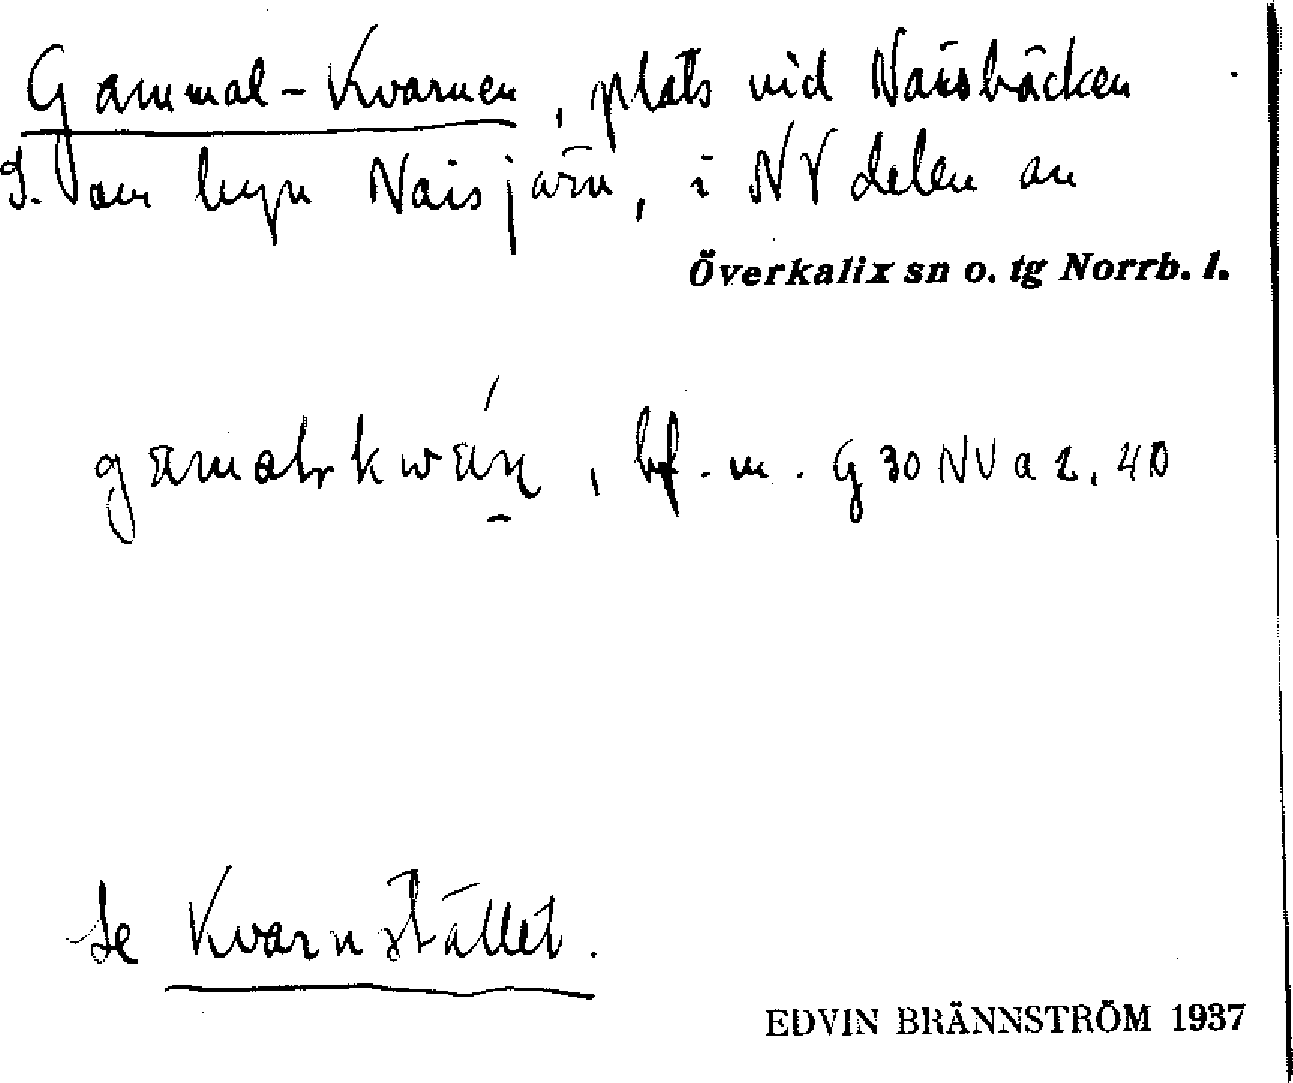 Gammal-Kvarnen, plats vid Naisbäcken
S. om byn Naisjärv, i NV delen av
Överkalix sn o. tg Norrb. l.
bf. m. G 30 NV a 2. 40
Se Kvarnstället.
EDVIN BRÄNNSTRÖM 1937